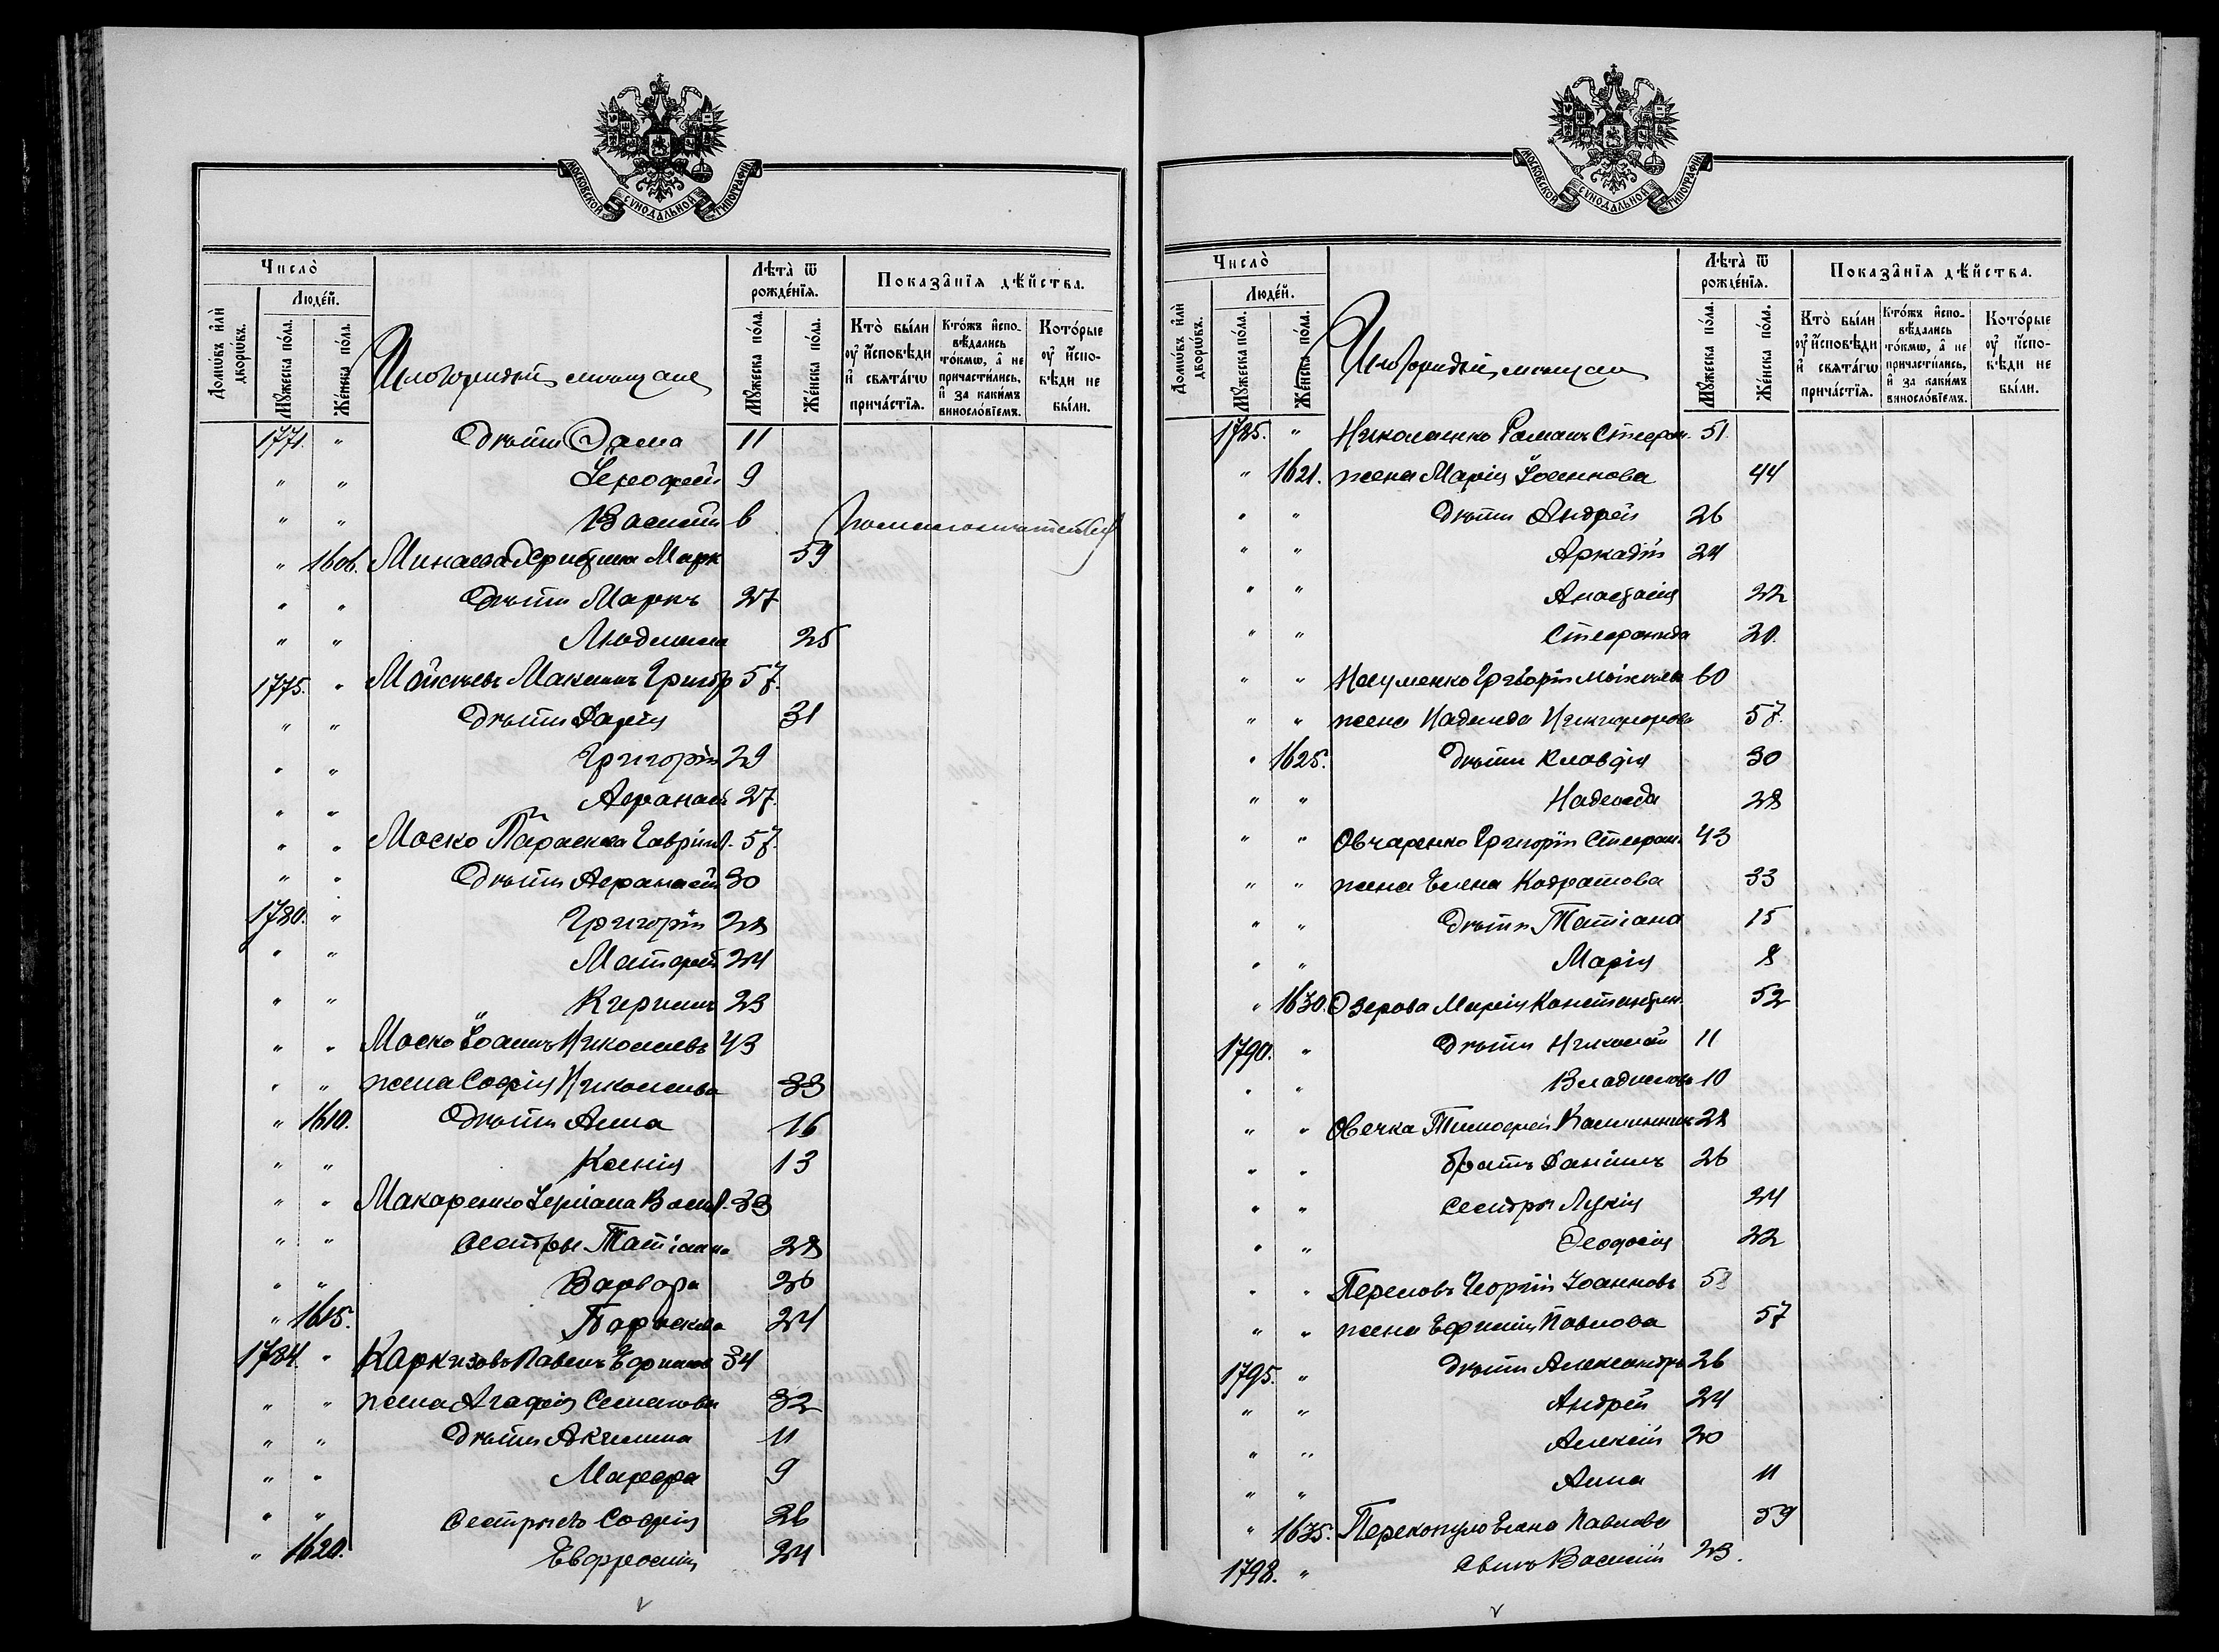 МОСКОВСКОЙ СѴНОДАЛЬНОЙ ТИПОГРАФІИ
Число̀
Люде́й.
Домѡ́въ и҆лѝ дворѡ́въ.
Мꙋ́жеска по́ла.
Же́нска по́ла.
Иногородніе мѣщане
Лѣта̀ ѿ рожде́нїѧ.
Мꙋ́жеска по́ла.
Же́нска по́ла.
Показа̑нїѧ дѣ́йства.
Кто̀ бы́ли ᲂу҆ и҆́сповѣди и҆ свѧта́гѡ прича́стїѧ.
Кто́жъ и҆спо-вѣ́дались то́кмѡ, а҆ не причасти́лись, и҆ за каки́мъ винослѡ́вїемъ.
Кото́рые ᲂу҆ и҆́спо-вѣди не бы́ли.
1771. " Дѣти 11
" " Іероѳей 9
" " Василій 6
" 1606. Минаева Христина Марк 59
" " Дѣти Маркъ 27
" " Людмила 25
1775. " Моисѣевъ Максимъ Григор 57.
" " Дѣти Дарія 31
" " Григорій 29
" " Аѳанасій 27.
" " Моско Параскева Гавріил. 57.
" " Дѣти Аѳанасій 30
1780. " Григорій 28
" " Матѳей 24
" " Кирилъ 23
" " Моско Іоаннъ Николаевъ 43
" " жена Софія Николаева 33
" 1610. Дѣти Анна 16
" " Ксенія 13
" " Макаренко Васил. 33
" " Сестры Татіана 28
" " Варвара 26
" 1615. Параскева 24
1784. " Каркизовъ Павелъ Ефимов 34
" " жена Агафія Семенова 32
" " Дѣти Акилина 11
" " Марѳа 9
" " Сестры его Софія 26
" 1620. Евфросинія 24
МОСКОВСКОЙ СѴНОДАЛЬНОЙ ТИПОГРАФІИ
Число̀
Люде́й.
Домѡ́въ и҆лѝ дворѡ́въ.
Мꙋ́жеска по́ла.
Же́нска по́ла.
Иногородніе мѣщане
Лѣта̀ ѿ рожде́нїѧ.
Мꙋ́жеска по́ла.
Же́нска по́ла.
Показа̑нїѧ дѣ́йства.
Кто̀ бы́ли ᲂу҆ и҆́сповѣди и҆ свѧта́гѡ прича́стїѧ.
Кто́жъ и҆спо-вѣ́дались то́кмѡ, а҆ не причасти́лись, и҆ за каки́мъ винослѡ́вїемъ.
Кото́рые ᲂу҆ и҆́спо-вѣди не бы́ли.
1785. " Николаенко Романъ Стефан. 51.
" 1621. жена Марія Іоаннова 44
" " Дѣти Андрей 26
" " Аркадій 24
" " Анастасія 22
" " Стефанида 20.
" " Науменко Григорій Моисѣев 60
" " жена Надежда Никифорова 57.
" 1625. Дѣти Клавдія 30
" " Надежда 28
" " Овчаренко Григорій Стефан. 43
" " жена Елена Кодратова 33
" " Дѣти Татіана 15
" " Марія 8
" 1630. Озерова Марія Константин. 52
1790. " Дѣти Николай 11
" " Владиміръ 10
" " Овечка Тимоѳей Каллиник 28
" " братъ Даніилъ 26
" " Сестры Лукія 24
" " Ѳеодосія 22
" " Перловъ Георгій Іоанновъ
" " жена Ефимія Павлова 57
1795. " Дѣти Александръ 26
" " Андрей 24
" " Алексій 20
" " Анна 11
" 1635. Перекопуло Елена Павлова 59
1798. " Сынъ Василій 23.